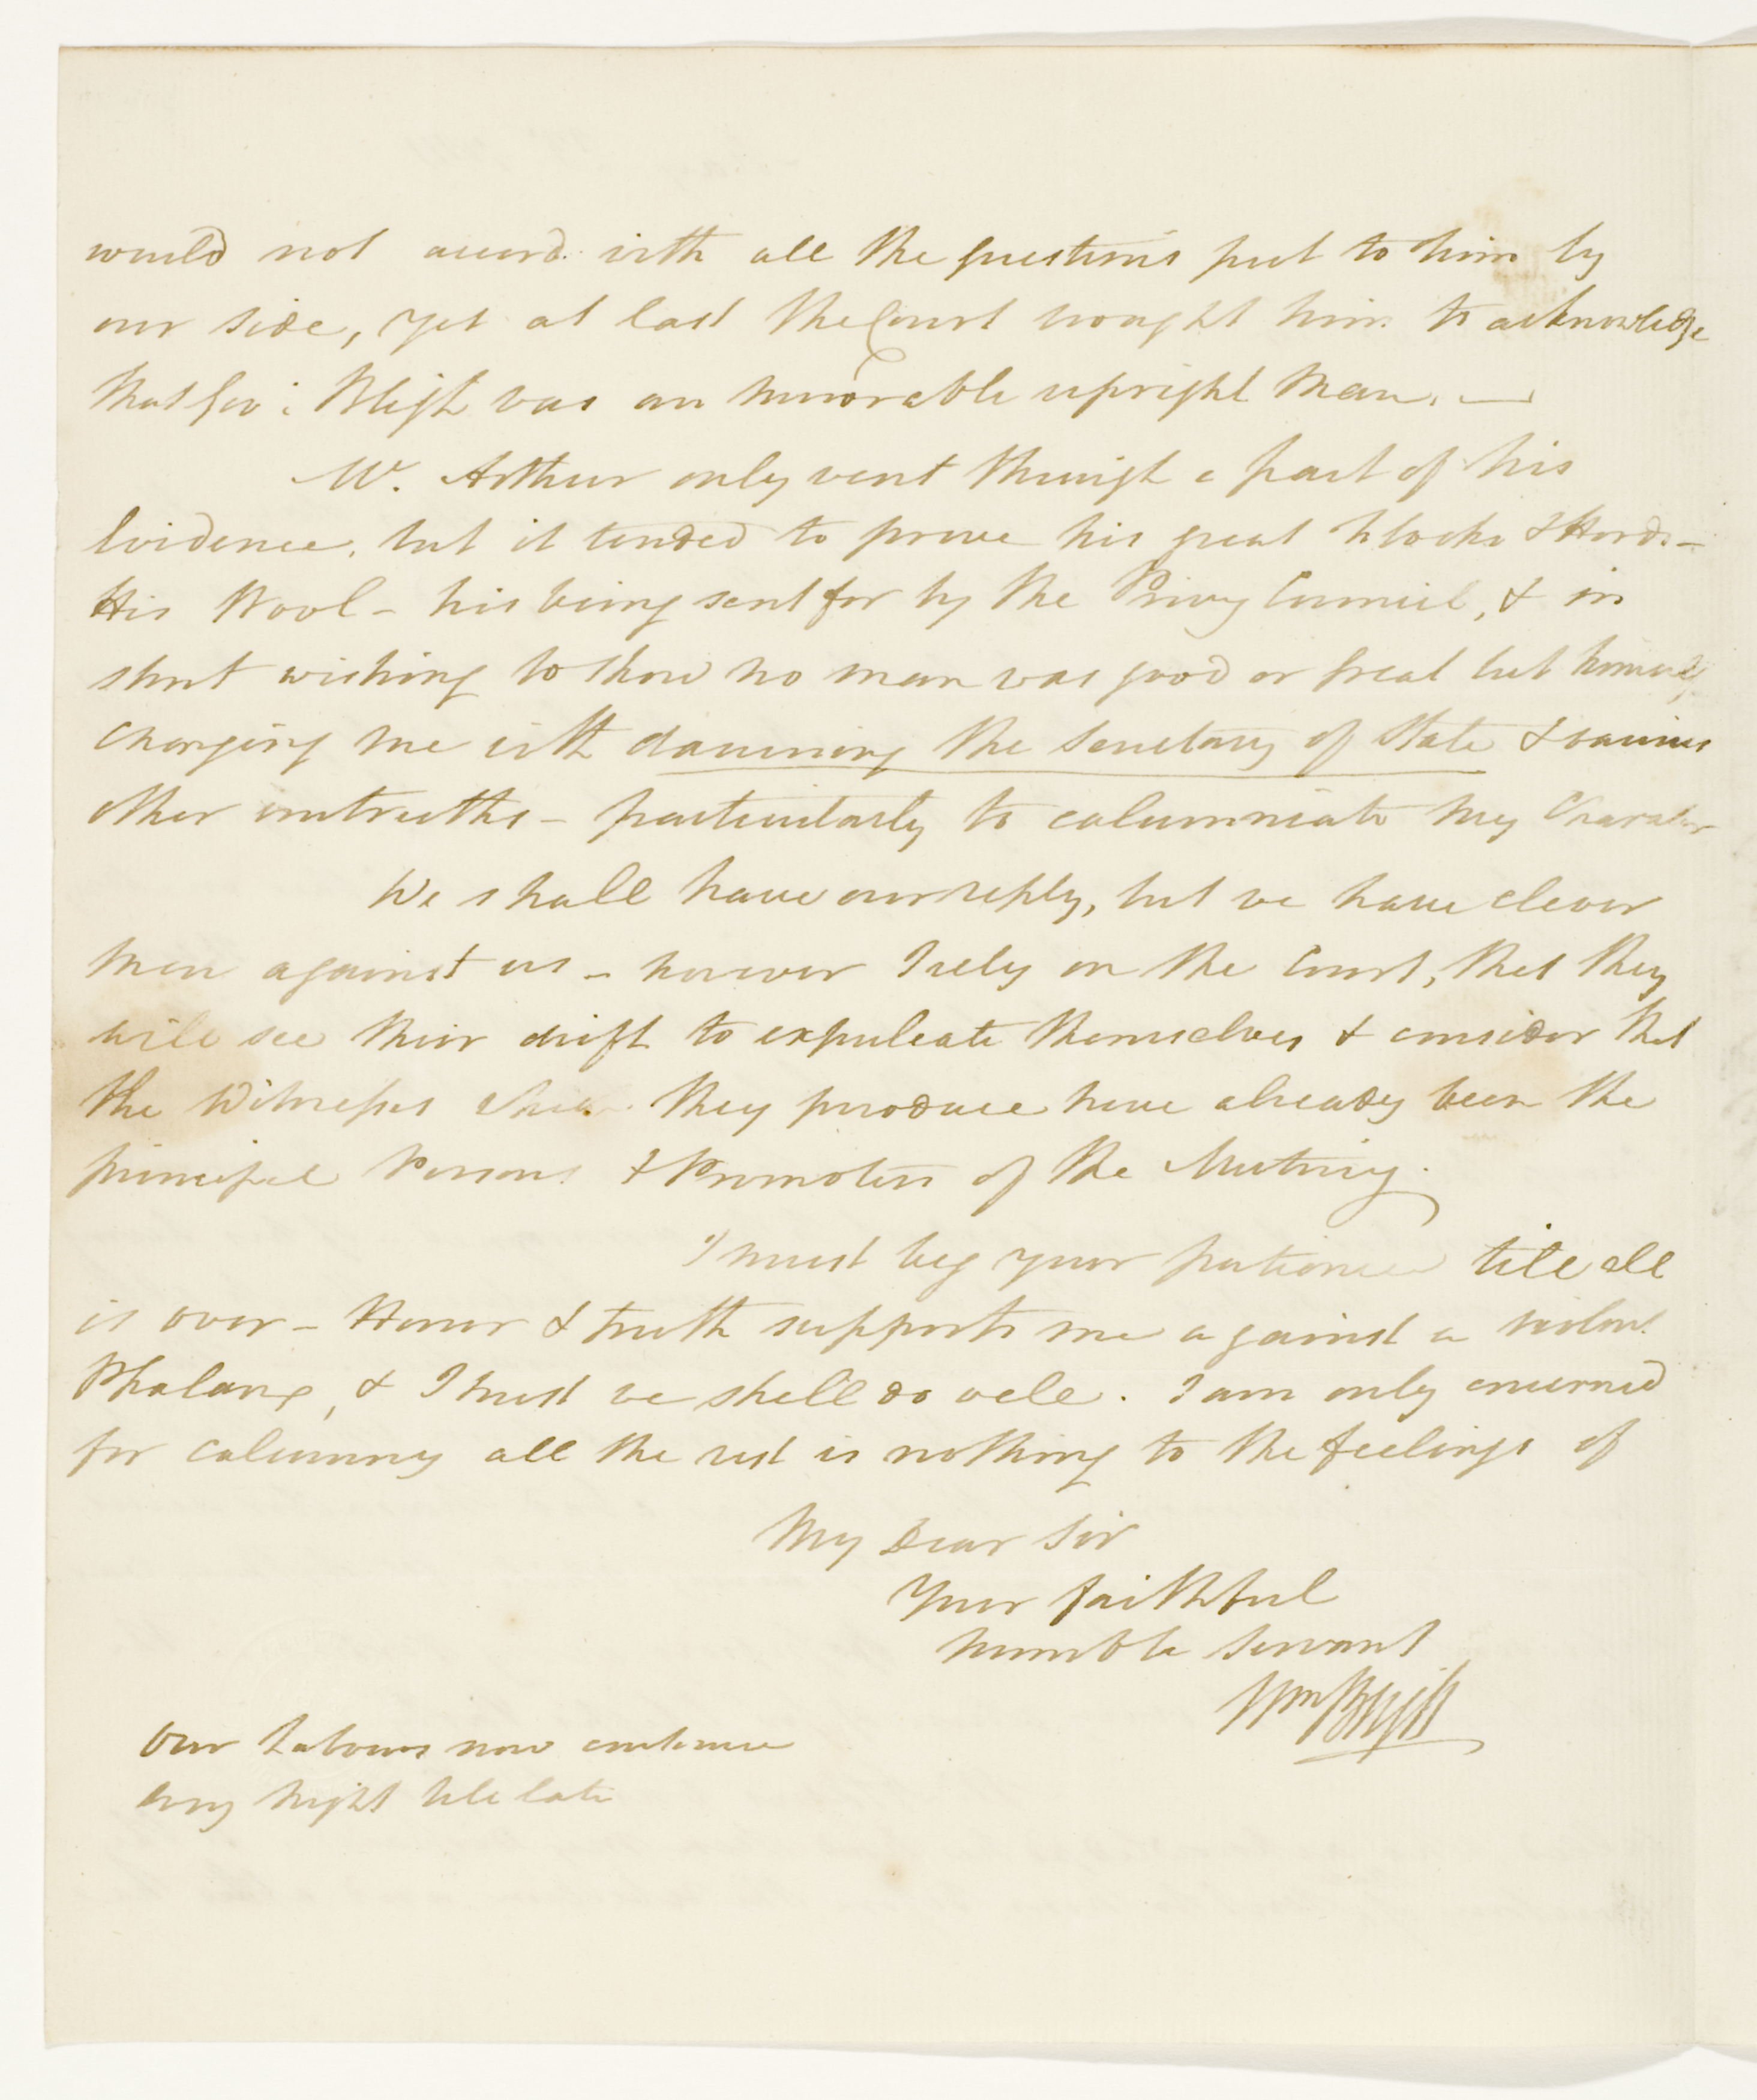 would not accord with all the questions put to him by
our side, yet at last the Court brought him to acknowledge
that Gov: Bligh was an honorable upright Man. —
Mc. Arthur only went through a part of his
Evidence, but it tended to prove his great Flocks & Herds –
His Wool – his being sent for by the Privy Council, & in
short wishing to show no man was good or great but himself
charging me with damning the Secretary of State & various
other untruths – particularly to calumniate my Character
We shall have our reply, but we have clever
men against us – however I rely on the Court, that they
will see their drift to exculpate themselves & consider that
the Witnesses they produce have already been the
principal Persons & Promoters of the Mutiny.
I must beg your patience till all
is over – Honor & truth supports me against a violent
Phalanx, & I trust we shall do well. I am only concerned
for calumny all the rest is nothing to the feelings of
My Dear Sir
Your faithful
humble Servant
Wm Bligh
Our Labours now continue
every night till late